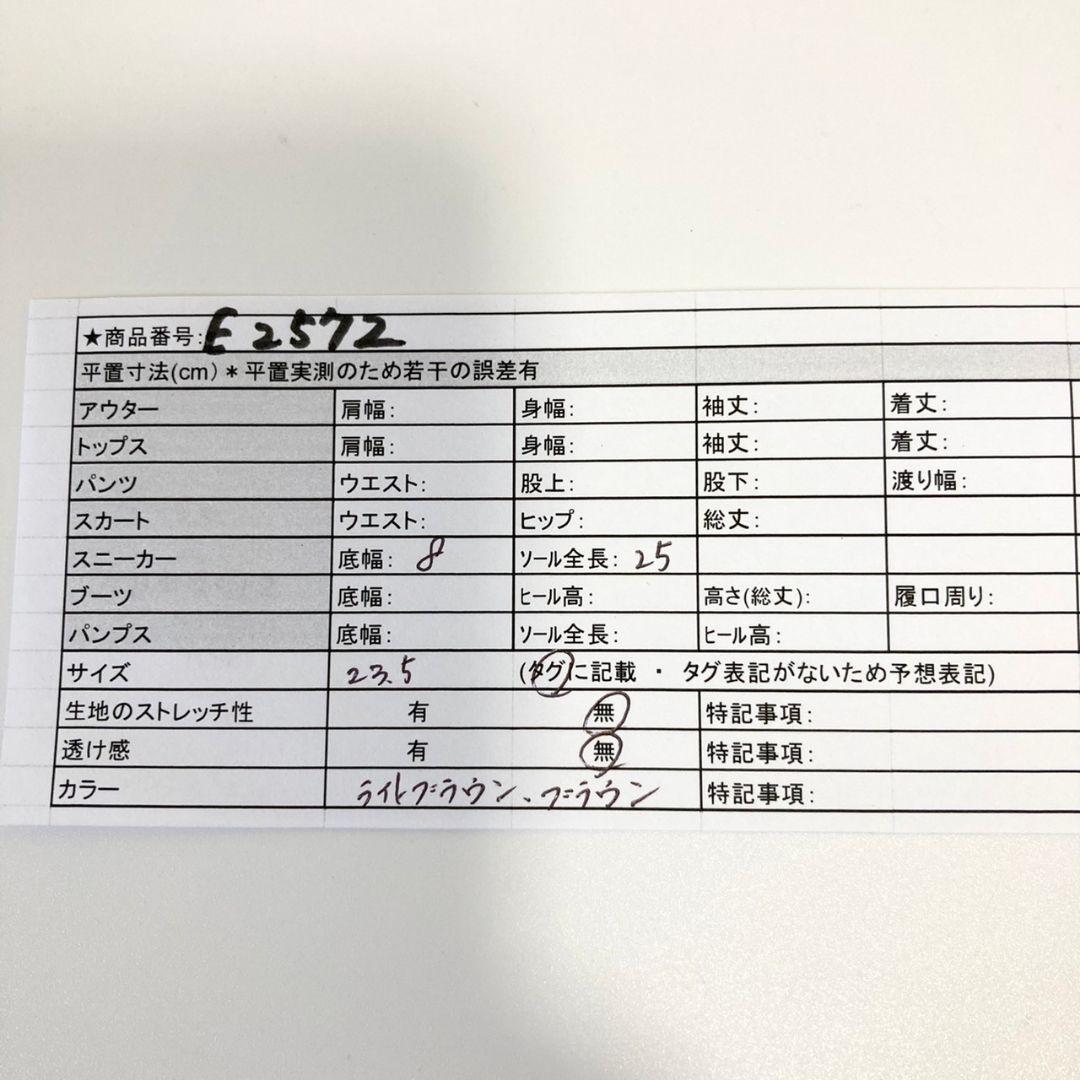 ★商品番号:E2572
平置寸法(cm)*平置実測のため若干の誤差有
アウター 肩幅: 身幅: 袖丈: 着丈:
トップス 肩幅: 身幅: 袖丈: 着丈:
パンツ ウエスト: 股上: 股下: 渡り幅:
スカート ウエスト: ヒップ: 総丈:
スニーカー 底幅: 8 ソール全長: 25
ブーツ 底幅: ヒール高: 高さ(総丈): 履口周り:
パンプス 底幅: ソール全長: ヒール高:
サイズ 23.5 (タグに記載 ・ タグ表記がないため予想表記)
生地のストレッチ性 有 無 特記事項:
透け感 有 無 特記事項:
カラー ライトブラウン、ブラウン 特記事項: